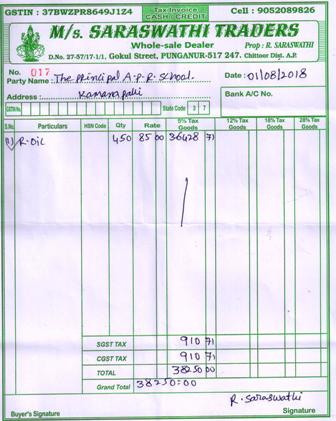 GSTIN : 37BWZPR8649J1Z4 Tax Invoice Cell : 9052089826
CASH / CREDIT
M/s. SARASWATHI TRADERS
Whole-sale Dealer Prop : R. SARASWATHI
D.No. 27-57/17-1/1, Gokul Street, PUNGANUR-517 247. Chittoor Dist. A.P.
No. 017 Date : 01/08/2018
Party Name : The principal A.P.R. School.
Address : Bank A/C No.
GSTIN No. State Code 3 7
S.No. Particulars HSN Code Qty Rate 5% Tax Goods 12% Tax Goods 18% Tax Goods 28% Tax Goods
1) R-OIL 450 85 00 36428 71
SGST TAX 910 71
CGST TAX 910 71
TOTAL 38250 00
Grand Total 38250=00
R. Saraswathi
Buyer's Signature Signature